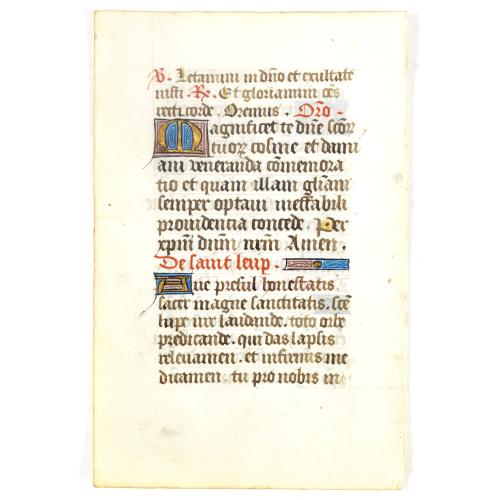 V. Letamini in dño et exultate
iusti. Rx. Et gloriamini oēs
recti corde. Oremus. Orō.
Magnificet te dñe scōr
tuoꝝ cosme et dami
ani veneranda cōmemora
tio et quam illam gliam
semper optavi ineffabili
providencia concede. Per
xpm̄ dnum nrm̄ Amen.
De saint leup.
Ave presul honestatis.
sacer magne sanctitatis. scē
lupe iux laudande. toto orbe
predicande. qui das lapsis
relevamen. et infirmis me
dicamen. tu pro nobis in